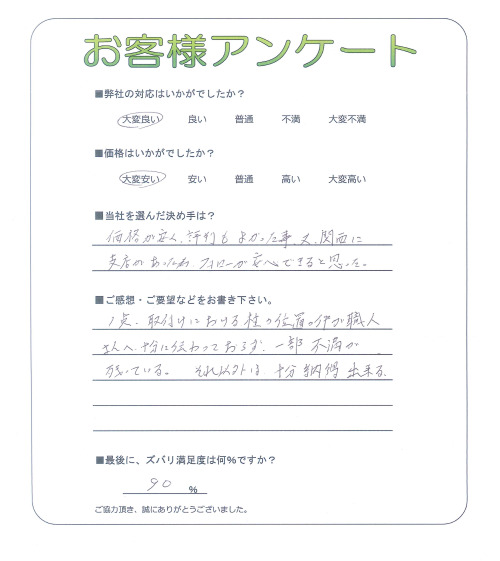 お客様アンケート
■弊社の対応はいかがでしたか？
大変良い 良い 普通 不満 大変不満
■価格はいかがでしたか？
大変安い 安い 普通 高い 大変高い
■当社を選んだ決め手は？
価格が安く、評判もよかった事、又、関西に
支店があったため、フォローが安心できると思った。
■ご感想・ご要望などをお書き下さい。
1点、取付けにおける柱の位置の件が職人
さんへ十分に伝わっておらず、一部不満が
残っている。 それ以外は、十分納得出来る。
■最後に、ズバリ満足度は何％ですか？
90 %
ご協力頂き、誠にありがとうございました。